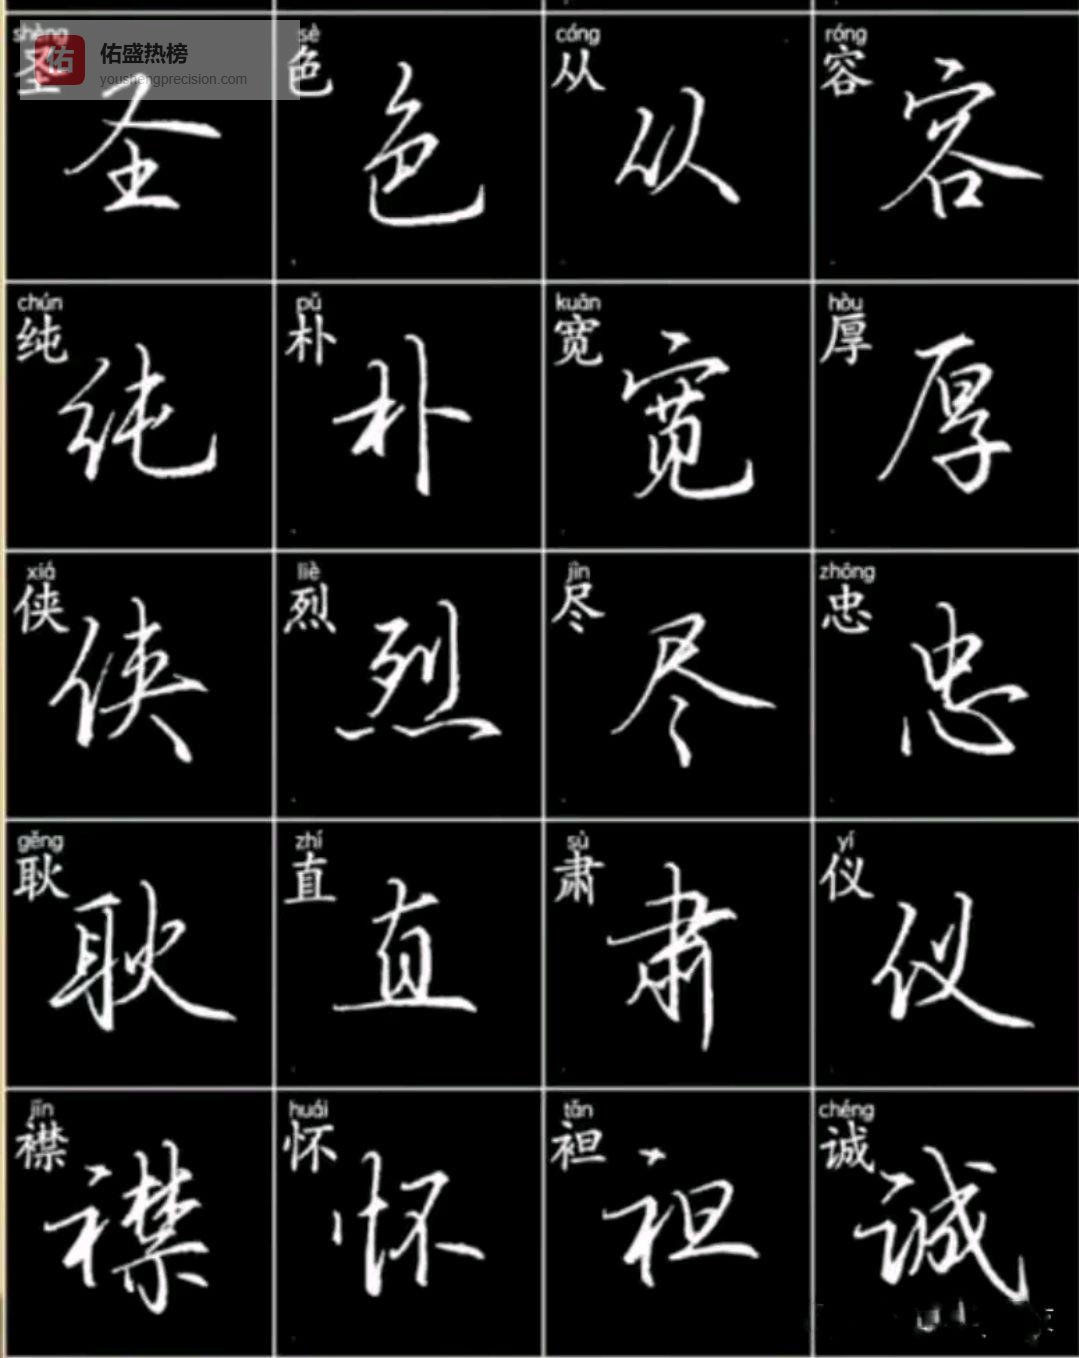 佑盛热榜
youshengprecision.com
shèng sè cóng róng
圣 色 从 容
圣 色 从 容
chún pǔ kuān hòu
纯 朴 宽 厚
纯 朴 宽 厚
xiá liè jìn zhōng
侠 烈 尽 忠
侠 烈 尽 忠
gěng zhí sù yí
耿 直 肃 仪
耿 直 肃 仪
jīn huái tǎn chéng
襟 怀 袒 诚
襟 怀 袒 诚